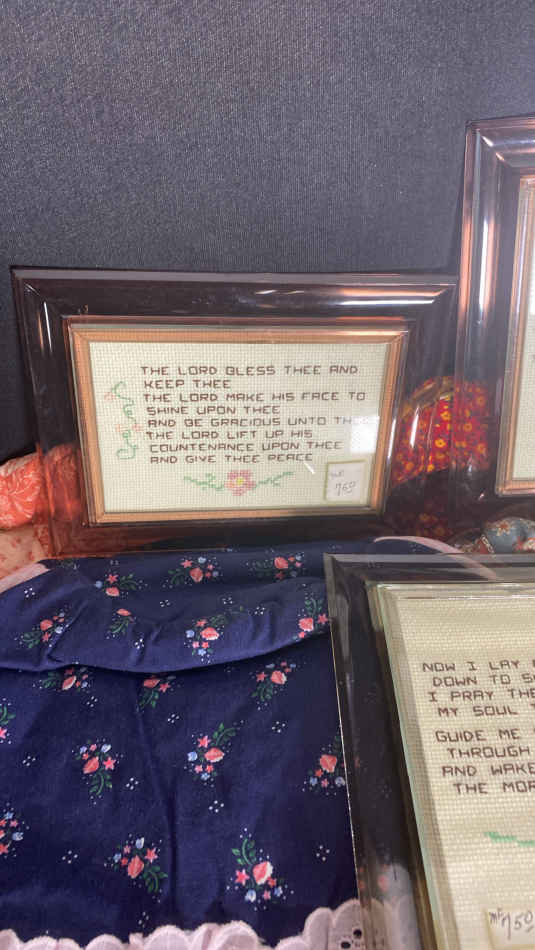 THE LORD BLESS THEE AND
KEEP THEE
THE LORD MAKE HIS FACE TO
SHINE UPON THEE
AND BE GRACIOUS UNTO THEE
THE LORD LIFT UP HIS
COUNTENANCE UPON THEE
AND GIVE THEE PEACE
MF
750
NOW I LAY
DOWN TO
I PRAY THE
MY SOUL
GUIDE ME
THROUGH
AND WAKE
THE MOR
MF
750